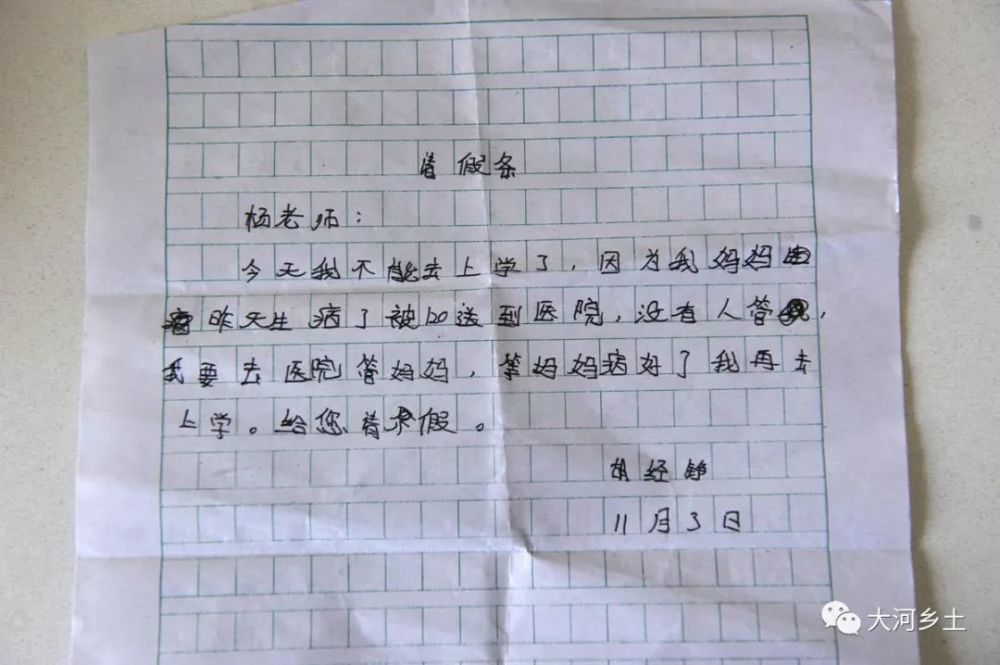 青假条
杨老师：
今天我不能去上学了，因为我妈妈
昨天生病了被120送到医院，没有人管，
我要去医院管妈妈，等妈妈病好了我再去
上学。给您青假。
胡经
11月3日
大河乡土